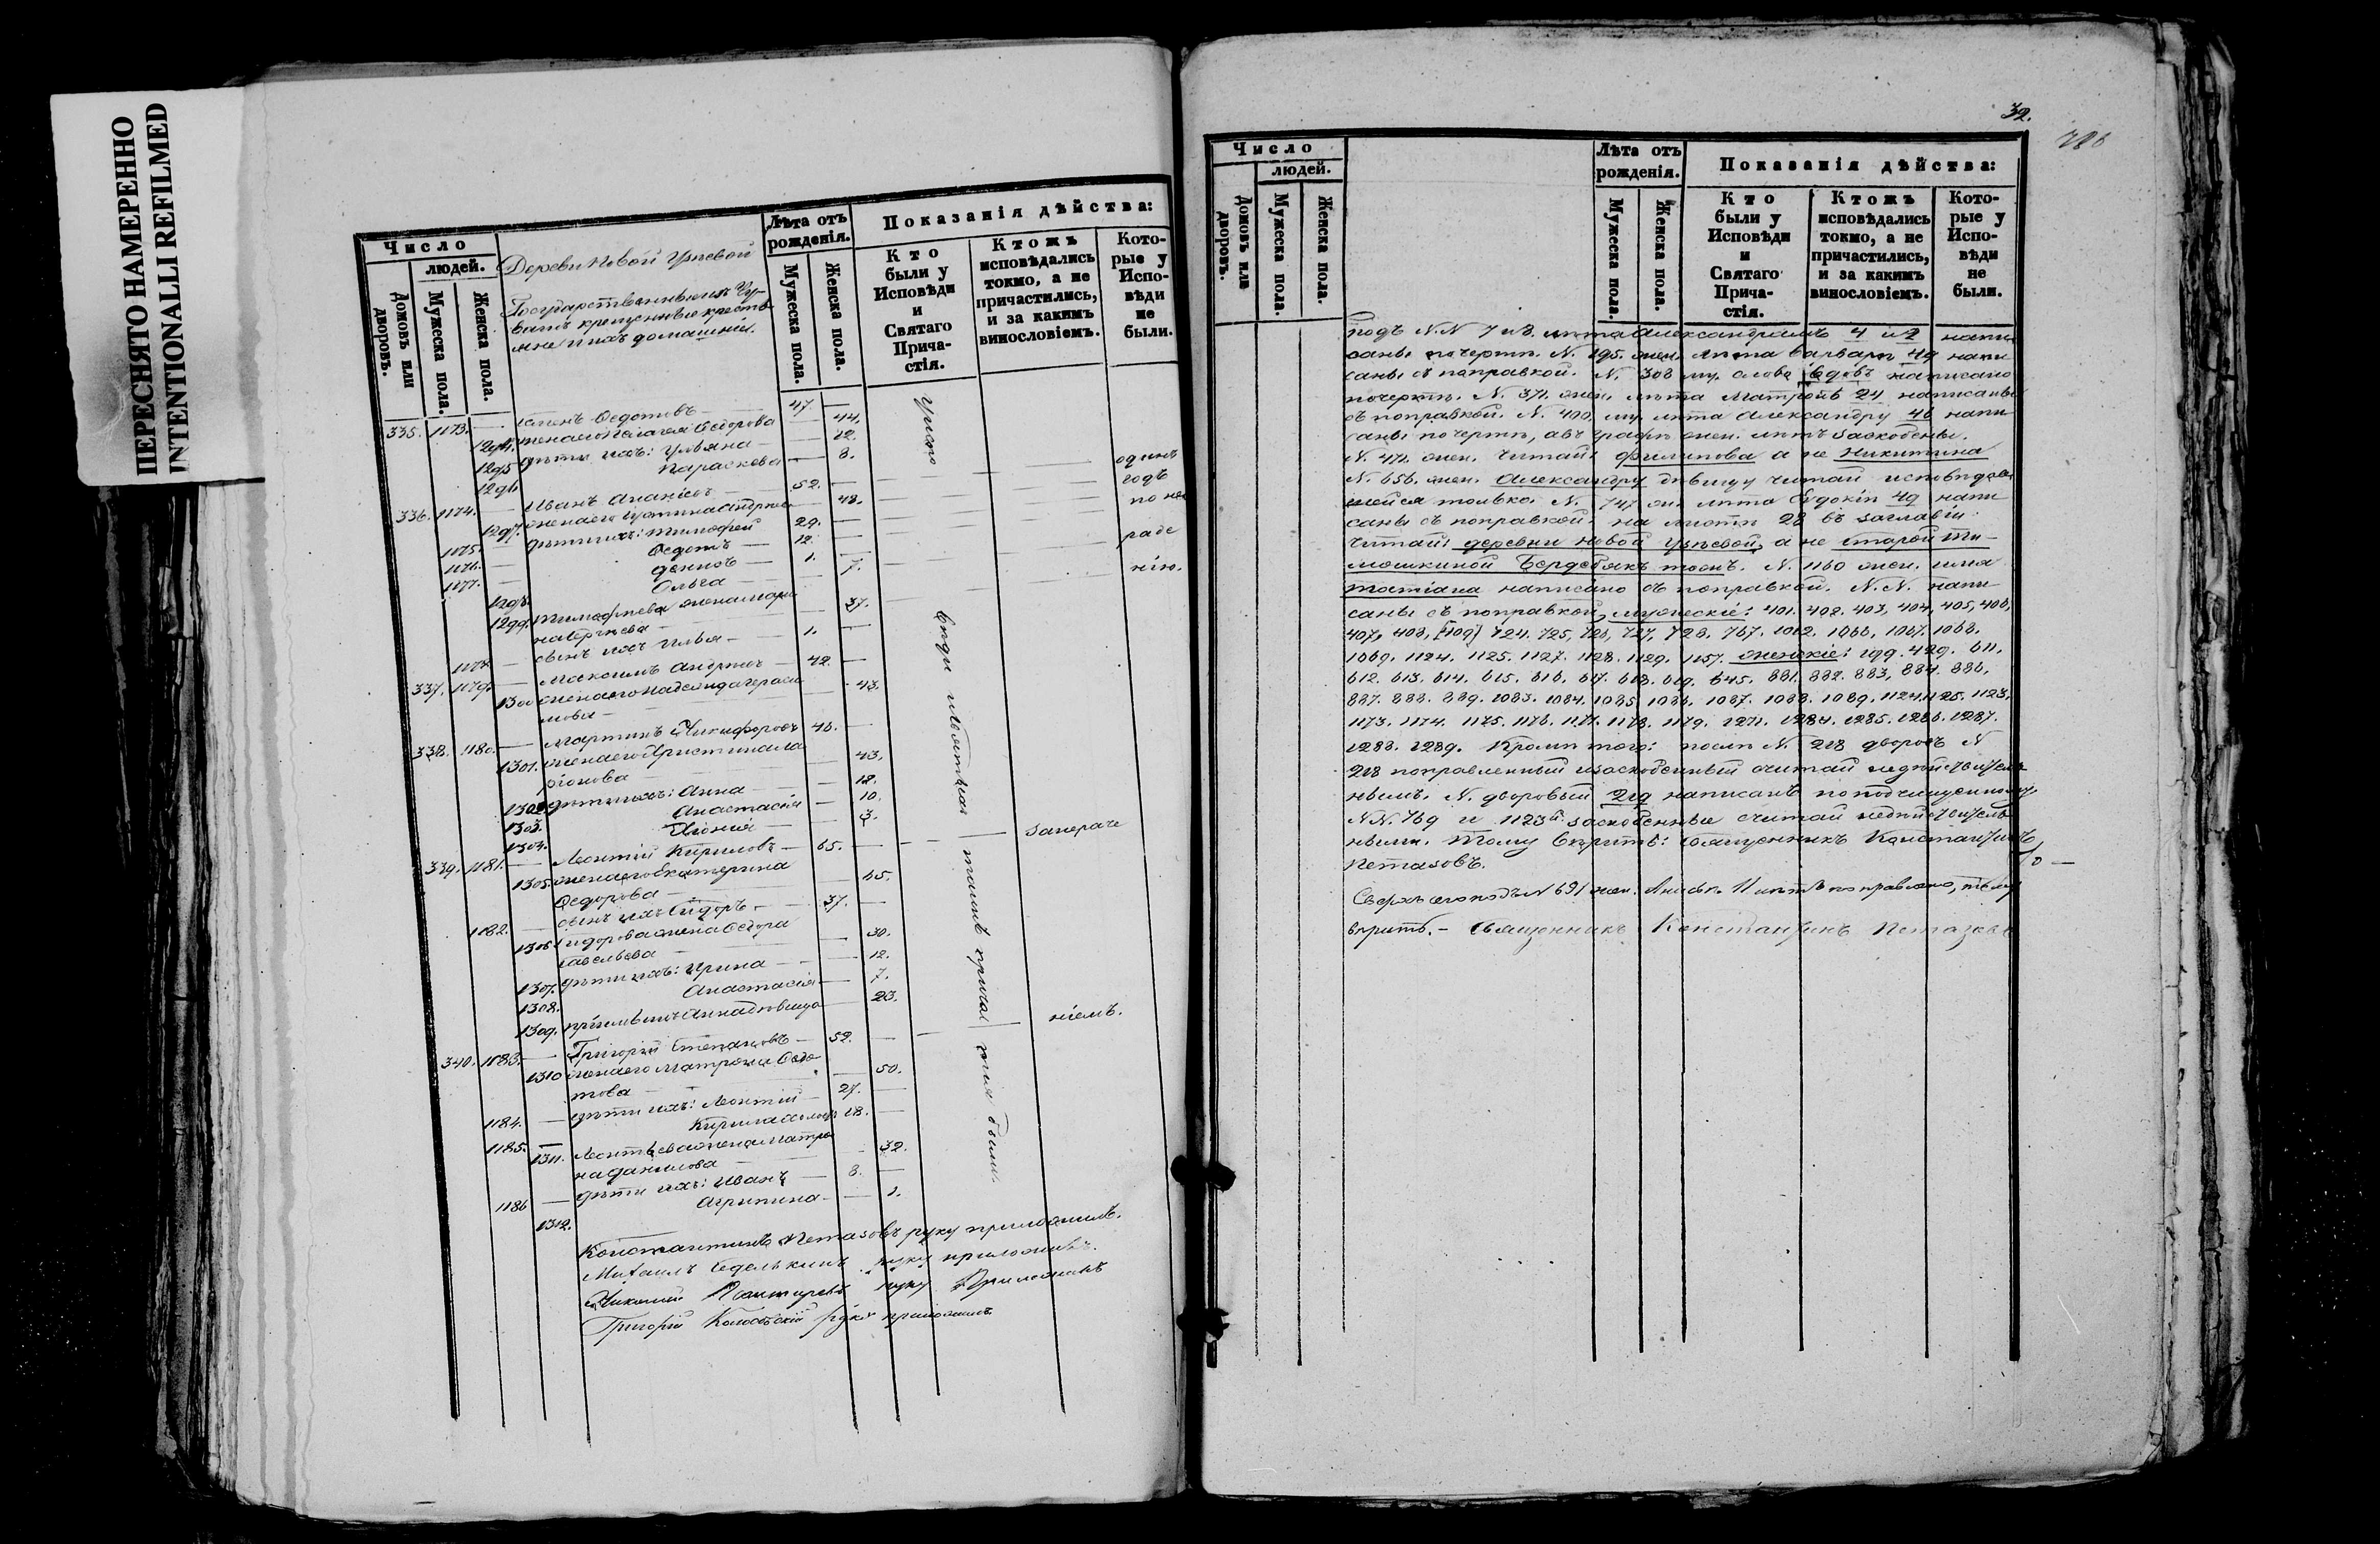 ПЕРЕСНЯТО НАМЕРЕННО
INTENTIONALLI REFILMED
Число
людей.
Домовъ или дворовъ.
Мужеска пола.
Женска пола.
Деревни Новой Узѣевой
Государственные изъ Чу-
вашъ крещенные крестья-
не и ихъ домашніи.
Лѣта отъ рожденія.
Мужеска пола.
Женска пола.
Показанія дѣйства:
Кто были у Исповѣди и Святаго Прича-стія.
Ктожъ исповѣдались токмо, а не причастились, и за какимъ винословіемъ.
Кото-рые у Испо-вѣди не были.
335. 1173. — Ѳедотовъ — 47. —
1294. жена его Пелагея Ѳедорова — 44.
1295 дѣти ихъ: Ульяна — 12.
1296 Параскева — 8.
336. 1174. — Иванъ — 52. —
1297. жена его Устина Андреева — 48.
1175. — дѣти ихъ: Тимофей 29. —
1176. — Ѳедотъ — 12. —
1177. — Денисъ — 1. —
1298. Ольга — 7.
1299. Тимофеева жена Мари
на Сергѣева — 37.
1178. — сынъ ихъ Илья — 1. —
337. 1179. — Максимъ Андреевъ — 42. —
1300 жена его Надежда Гераси
мова — 43.
338. 1180. — Мартинъ Никифоровъ 46. —
1301. жена его Христина Ла
ріонова — 43.
1302 дѣти ихъ: Анна — 18.
1303. Анастасія — 10.
1304. — 3.
339. 1181. — Леонтій Кириловъ — 65. —
1305. жена его Екатерина
Ѳедорова — 65.
1182. — сынъ ихъ Сидоръ — 37. —
1306 Сидорова жена Ѳедора
Савельева — 30.
1307. дѣти ихъ: Ирина — 12.
1308. Анастасія — 7.
1309. Анна дѣвица 23.
340. 1183. — Григорій Степановъ — 52. —
1310 жена его Матрена Ѳедо
това — 50.
1184. — дѣти ихъ: Леонтій — 27. —
1185. — Кирила 18. —
1311. Леонтьева жена Матре
на Данилова — 32.
1186 — дѣти ихъ: Иванъ — 8. —
1312. Агрипина — 1.
у испо
вѣди и святаго таинъ причастія были
одинъ
годъ
по не
раде
нію.
запераче
ніемъ.
Константинъ Петазовъ руку приложилъ.
Михаилъ руку приложилъ.
Николай руку приложилъ
Григорій руку приложилъ.
32.
286
Число
людей.
Домовъ или дворовъ.
Мужеска пола.
Женска пола.
Лѣта отъ рожденія.
Мужеска пола.
Женска пола.
Показанія дѣйства:
Кто были у Исповѣди и Святаго Прича-стія.
Ктожъ исповѣдались токмо, а не причастились, и за какимъ винословіемъ.
Кото-рые у Испо-вѣди не были.
Подъ N.N 7 и 8. лѣта Александрамъ 4 и 2 напи
саны по черте. N. 195. жен. лѣта Варвары 49 напи
саны съ поправкой. N. 308 му. слово вдовъ написано
по черте. N. 371. жен. лѣта Матроны 24 написаны
съ поправкой. N. 400. му. лѣта Александру 46 напи
саны по черте, а въ графѣ жен. лѣтъ заскоблены.
N. 472. жен. Читай: Филипова а не Никитина
N. 656. жен. Александру дѣвицу читай исповѣдав
шейся только. N. 747 ж. лѣта Евдокіи 49 напи
саны съ поправкой. на листѣ 28 въ заглавіи
читай: деревни новой Узѣевой, а не старой Ти-
мошкиной Бердебякъ тожъ. N. 1160 жен. имя
Татіана написано съ поправкой. N.N. напи
саны съ поправкой, мужескіе: 401. 402. 403, 404, 405, 406,
407, 408, [409] 724. 725, 726, 727, 728. 767. 1012. 1066, 1067. 1068.
1069. 1124. 1125. 1127. 1128. 1129. 1157. женскіе: 199. 429. 611.
612. 613. 614. 615. 616. 617. 618. 619. 645. 881. 882. 883, 884. 886.
887. 888. 889. 1083. 1084. 1085. 1086. 1087. 1088. 1089. 1124. 1125. 1128.
1173. 1174. 1175. 1176. 1177. 1178. 1179. 1271. 1284. 1285. 1286. 1287.
1288. 1289. Кромѣ того: послѣ N. 218 дворовъ N
218 поправленный и заскобленный считай недѣйствитель
нымъ. N. дворовый 219 написанъ по подчищенному.
N.N. 769 и 1123й заскобленные считай недѣйствитель
ными. Тому вѣрить: Священникъ Константинъ
Петазовъ.
Сверхъ сего подъ N 691 жен. поправлено, тому
вѣрить. — Священникъ Константинъ Петазовъ